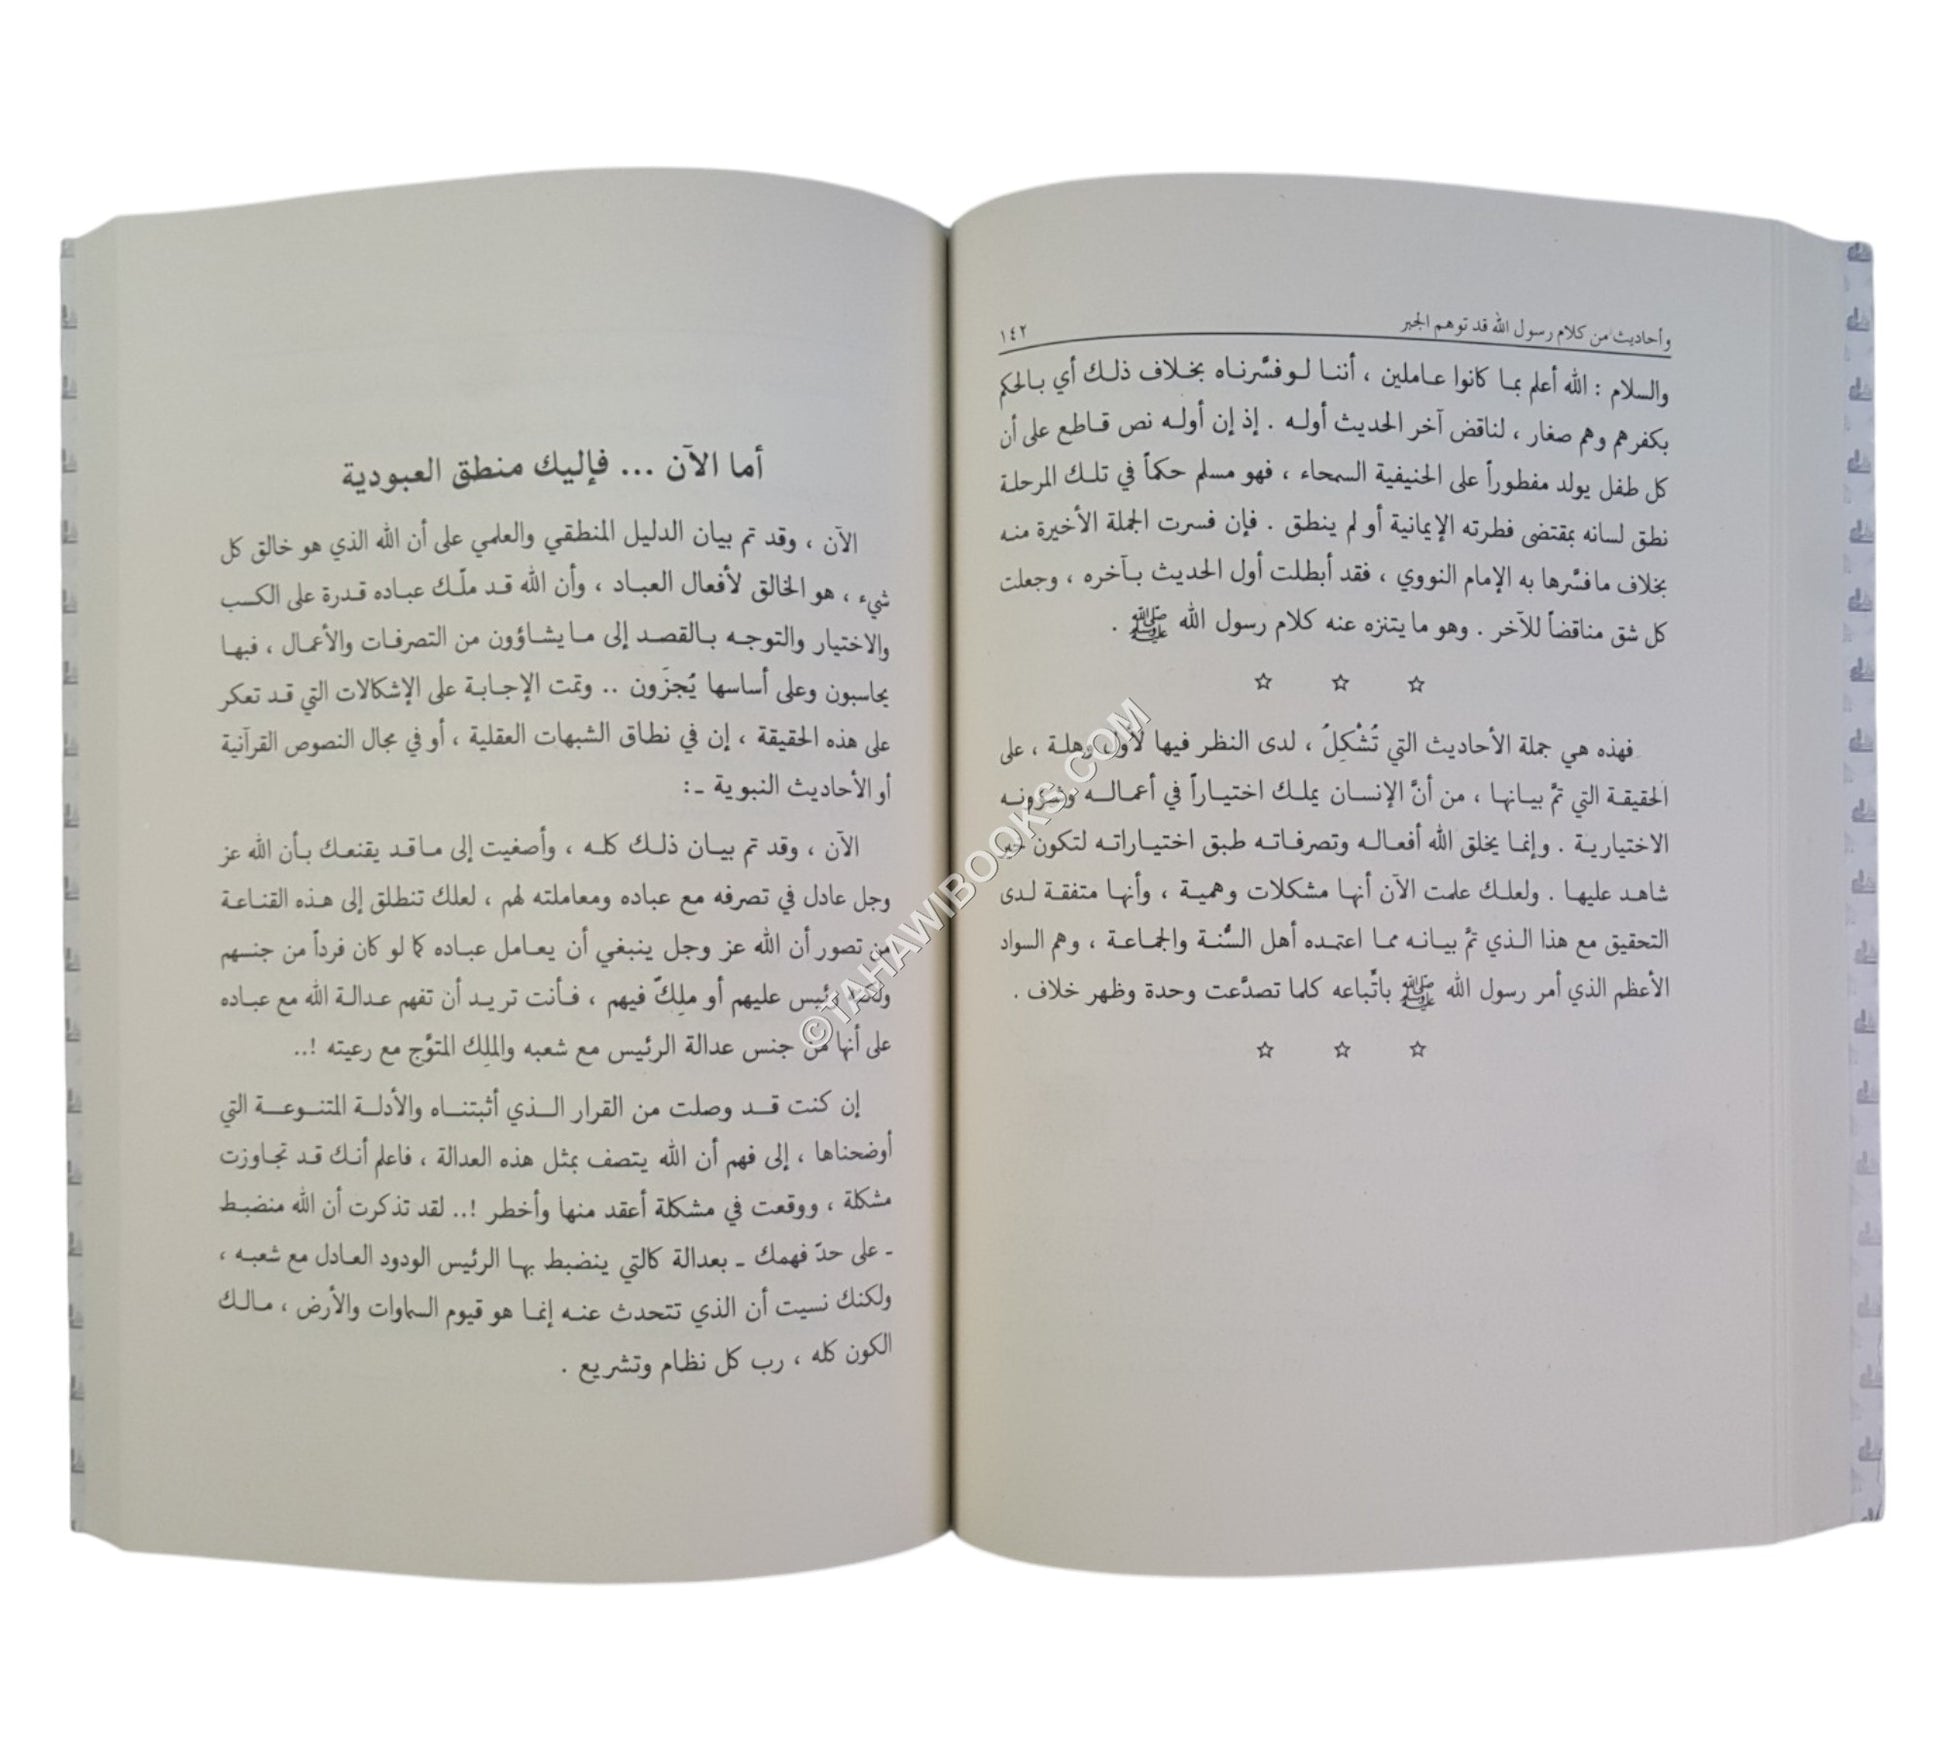 وأحاديث من كلام رسول الله قد توهم الجبر
١٤٢
والسلام : الله أعلم بما كانوا عاملين ، أننا لو فسَّرناه بخلاف ذلك أي بالحكم
بكفرهم وهم صغار ، لناقض آخر الحديث أوله . إذ إن أوله نص قاطع على أن
كل طفل يولد مفطوراً على الحنيفية السمحاء ، فهو مسلم حكماً في تلك المرحلة
نطق لسانه بمقتضى فطرته الإيمانية أو لم ينطق . فإن فسرت الجملة الأخيرة منه
بخلاف ما فسَّرها به الإمام النووي ، فقد أبطلت أول الحديث بآخره ، وجعلت
كل شق مناقضاً للآخر . وهو ما يتنزه عنه كلام رسول الله ﷺ .
☆ ☆ ☆
فهذه هي جملة الأحاديث التي تُشْكِلُ ، لدى النظر فيها لأول وهلة ، على
الحقيقة التي تمَّ بيانها ، من أنَّ الإنسان يملك اختياراً في أعماله وشؤونه
الاختيارية . وإنما يخلق الله أفعاله وتصرفاته طبق اختياراته لتكون خير
شاهد عليها . ولعلك علمت الآن أنها مشكلات وهمية ، وأنها متفقة لدى
التحقيق مع هذا الذي تمَّ بيانه مما اعتمده أهل السُّنة والجماعة ، وهم السواد
الأعظم الذي أمر رسول الله ﷺ باتِّباعه كلما تصدَّعت وحدة وظهر خلاف .
☆ ☆ ☆
أما الآن ... فإليك منطق العبودية
الآن ، وقد تم بيان الدليل المنطقي والعلمي على أن الله الذي هو خالق كل
شيء ، هو الخالق لأفعال العباد ، وأن الله قد ملّك عباده قدرة على الكسب
والاختيار والتوجه بالقصد إلى ما يشاؤون من التصرفات والأعمال ، فبها
يحاسبون وعلى أساسها يُجزَون .. وتمت الإجابة على الإشكالات التي قد تعكر
على هذه الحقيقة ، إن في نطاق الشبهات العقلية ، أو في مجال النصوص القرآنية
أو الأحاديث النبوية ـ :
الآن ، وقد تم بيان ذلك كله ، وأصغيت إلى ما قد يقنعك بأن الله عز
وجل عادل في تصرفه مع عباده ومعاملته لهم ، لعلك تنطلق إلى هذه القناعة
من تصور أن الله عز وجل ينبغي أن يعامل عباده كما لو كان فرداً من جنسهم
ولكنه رئيس عليهم أو ملِكٌ فيهم ، فأنت تريد أن تفهم عدالة الله مع عباده
على أنها من جنس عدالة الرئيس مع شعبه والملِك المتوَّج مع رعيته !..
إن كنت قد وصلت من القرار الذي أثبتناه والأدلة المتنوعة التي
أوضحناها ، إلى فهم أن الله يتصف بمثل هذه العدالة ، فاعلم أنك قد تجاوزت
مشكلة ، ووقعت في مشكلة أعقد منها وأخطر !.. لقد تذكرت أن الله منضبط
ـ على حدّ فهمك ـ بعدالة كالتي ينضبط بها الرئيس الودود العادل مع شعبه ،
ولكنك نسيت أن الذي تتحدث عنه إنما هو قيوم السماوات والأرض ، مالك
الكون كله ، رب كل نظام وتشريع .
©TAHAWIBOOKS.COM